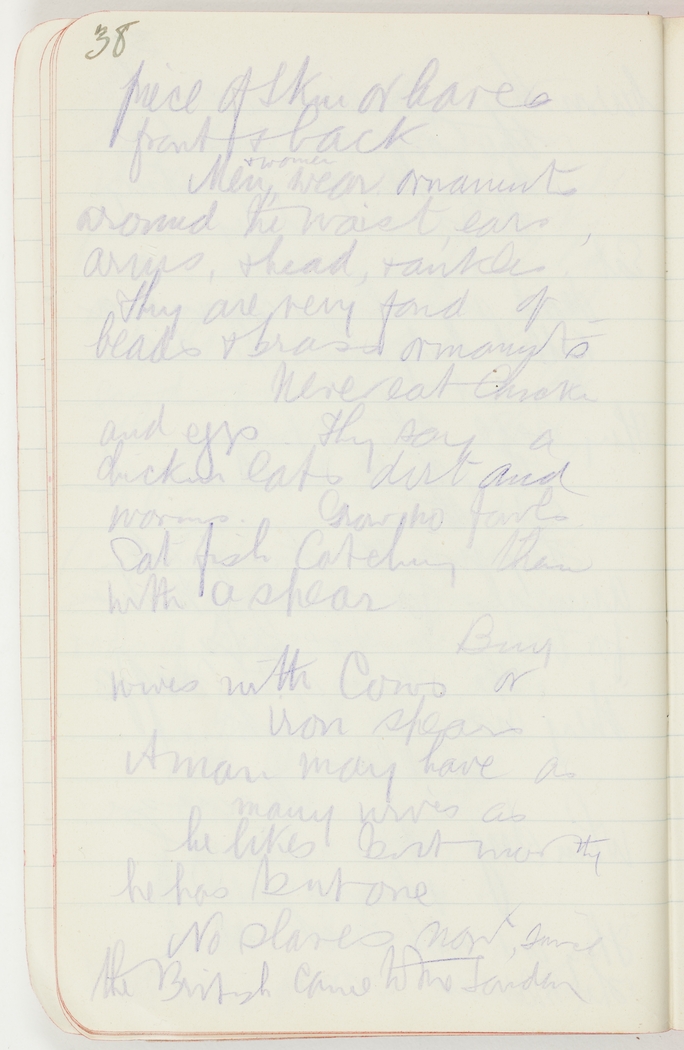 38
piece of skin or leaves
front & back
& women
Men, wear ornaments
around the waist, ears,
arms, & head, & ankles
They are very fond of
beads & brass ornaments
Never eat Chicken
and eggs They say a
chicken eats dirt and
worms. Grow no fowls
Eat fish Catching them
with a spear
Buy
wives with Cows or
iron spears
A man may have as
many wives as
he likes but
he has but one
No slaves now, since
the British came to the